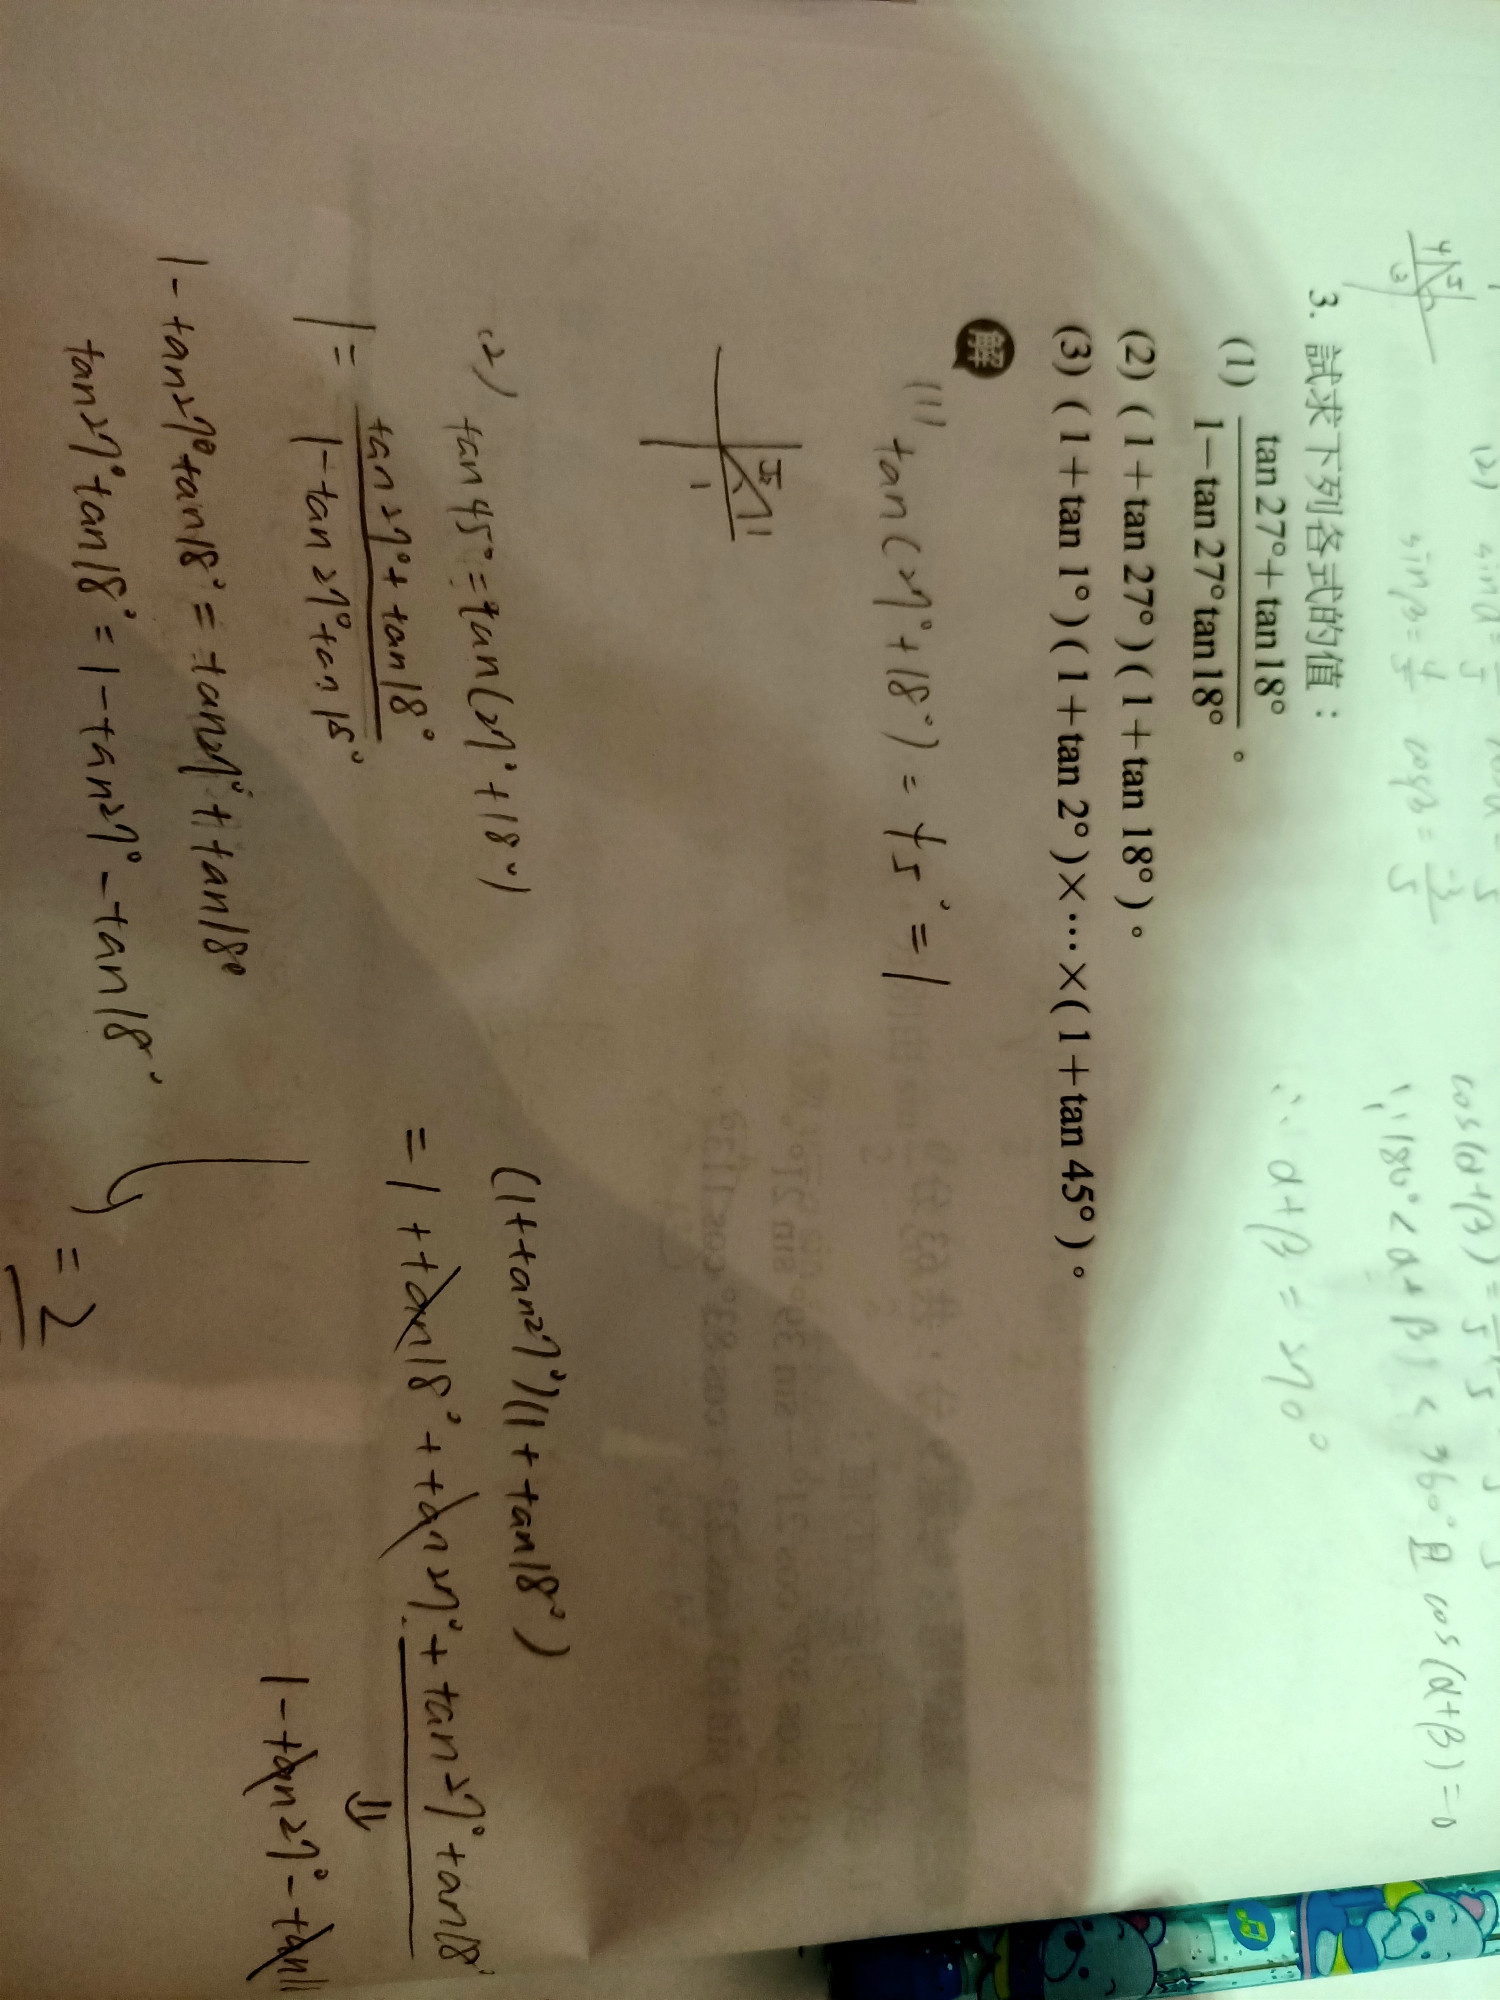 (2) sinα =
sinβ = 4/5 cosβ = -3/5
cos(α+β) =
∵ 180° < α+β < 360° 且 cos(α+β) = 0
∴ α+β = 270°
4 5 3
3. 試求下列各式的值：
(1) tan 27°+tan 18° / 1−tan 27° tan 18° 。
(2) (1+tan 27°)(1+tan 18°)。
(3) (1+tan 1°)(1+tan 2°)×⋯×(1+tan 45°)。
解
(1) tan(27°+18°) = 45° = 1
√2 1 1
(2) tan 45° = tan(27°+18°)
1 = tan 27° + tan 18° / 1 - tan 27° tan 18°
1 - tan 27° tan 18° = tan 27° + tan 18°
tan 27° tan 18° = 1 - tan 27° - tan 18°
(1+tan 27°)(1+tan 18°)
= 1 + tan 18° + tan 27° + tan 27° tan 18°
⇓
1 - tan 27° - tan 1
= 2